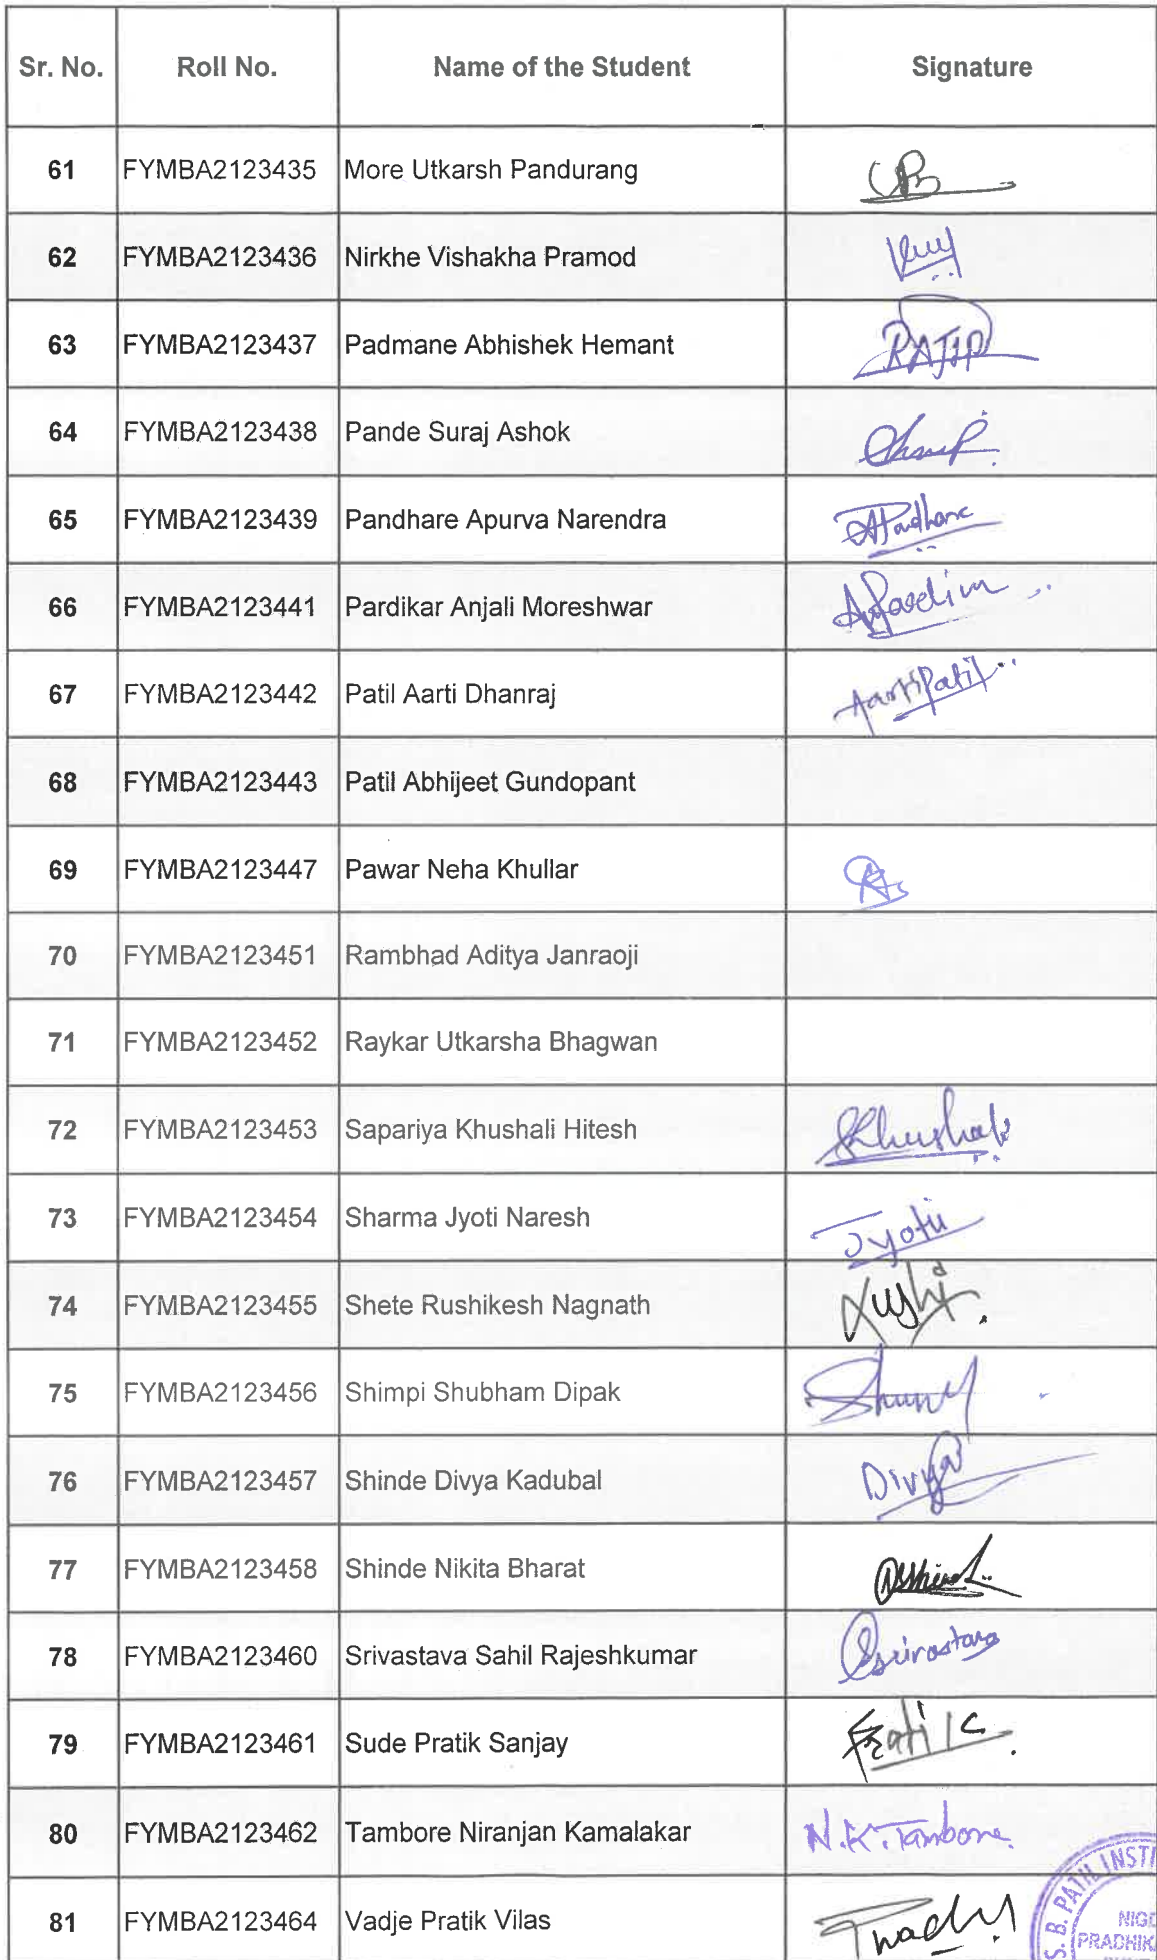 Sr. No. Roll No. Name of the Student Signature
61 FYMBA2123435 More Utkarsh Pandurang
62 FYMBA2123436 Nirkhe Vishakha Pramod
63 FYMBA2123437 Padmane Abhishek Hemant
64 FYMBA2123438 Pande Suraj Ashok
65 FYMBA2123439 Pandhare Apurva Narendra
66 FYMBA2123441 Pardikar Anjali Moreshwar
67 FYMBA2123442 Patil Aarti Dhanraj AartiPatil
68 FYMBA2123443 Patil Abhijeet Gundopant
69 FYMBA2123447 Pawar Neha Khullar
70 FYMBA2123451 Rambhad Aditya Janraoji
71 FYMBA2123452 Raykar Utkarsha Bhagwan
72 FYMBA2123453 Sapariya Khushali Hitesh
73 FYMBA2123454 Sharma Jyoti Naresh Jyoti
74 FYMBA2123455 Shete Rushikesh Nagnath
75 FYMBA2123456 Shimpi Shubham Dipak
76 FYMBA2123457 Shinde Divya Kadubal Divya
77 FYMBA2123458 Shinde Nikita Bharat
78 FYMBA2123460 Srivastava Sahil Rajeshkumar
79 FYMBA2123461 Sude Pratik Sanjay
80 FYMBA2123462 Tambore Niranjan Kamalakar N.K.Tambore
81 FYMBA2123464 Vadje Pratik Vilas
S. B. PATIL INSTI
NIG
PRADHIK